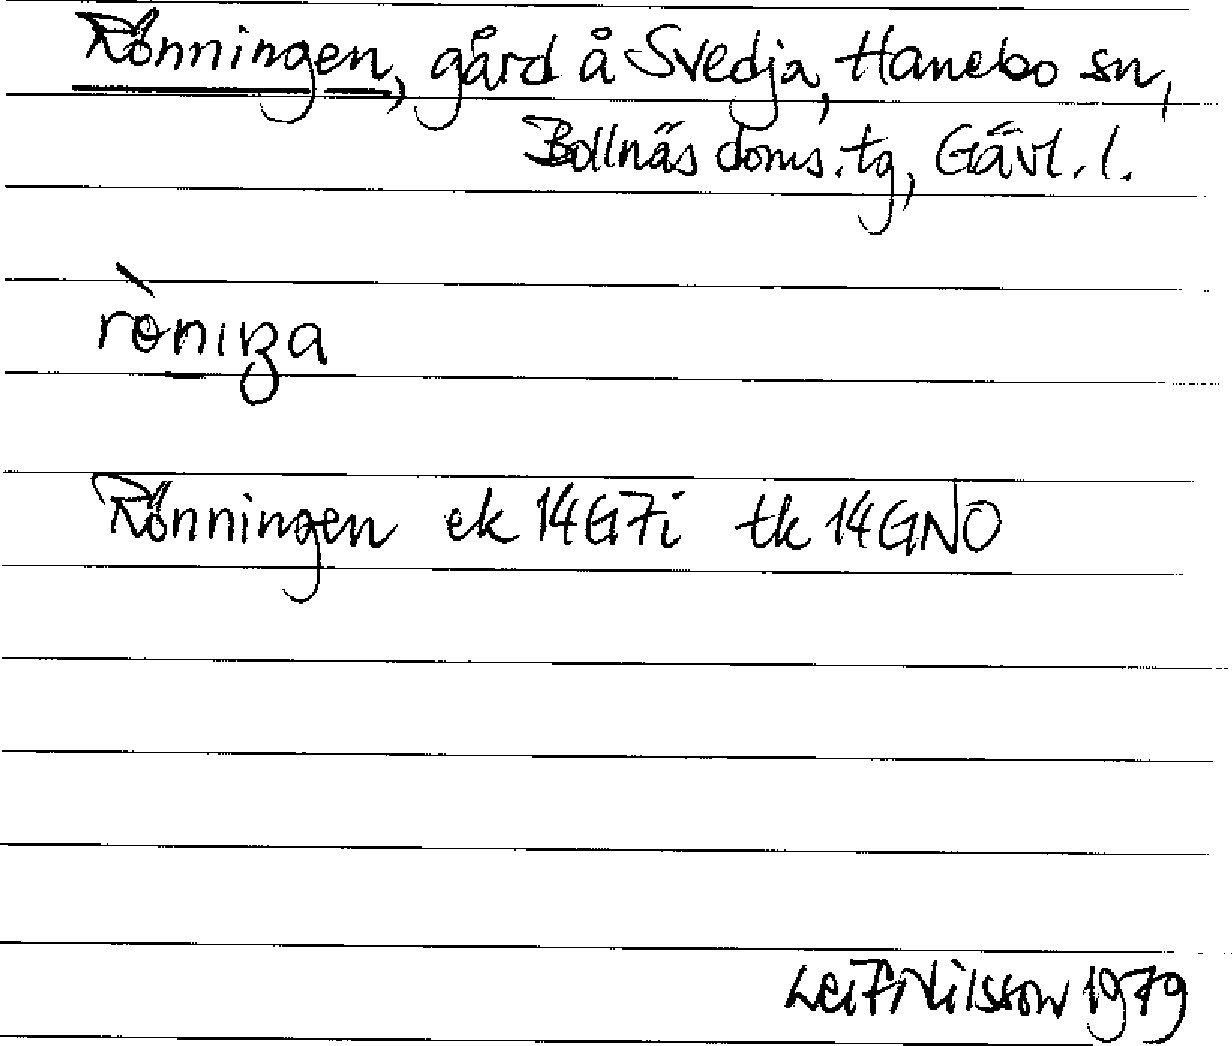 Rönningen, gård å Svedja, Hanebo sn,
Bollnäs doms. tg, Gävl. l.
Rönningen ek 14G7i tk 14GNO
Leif Nilsson 1979